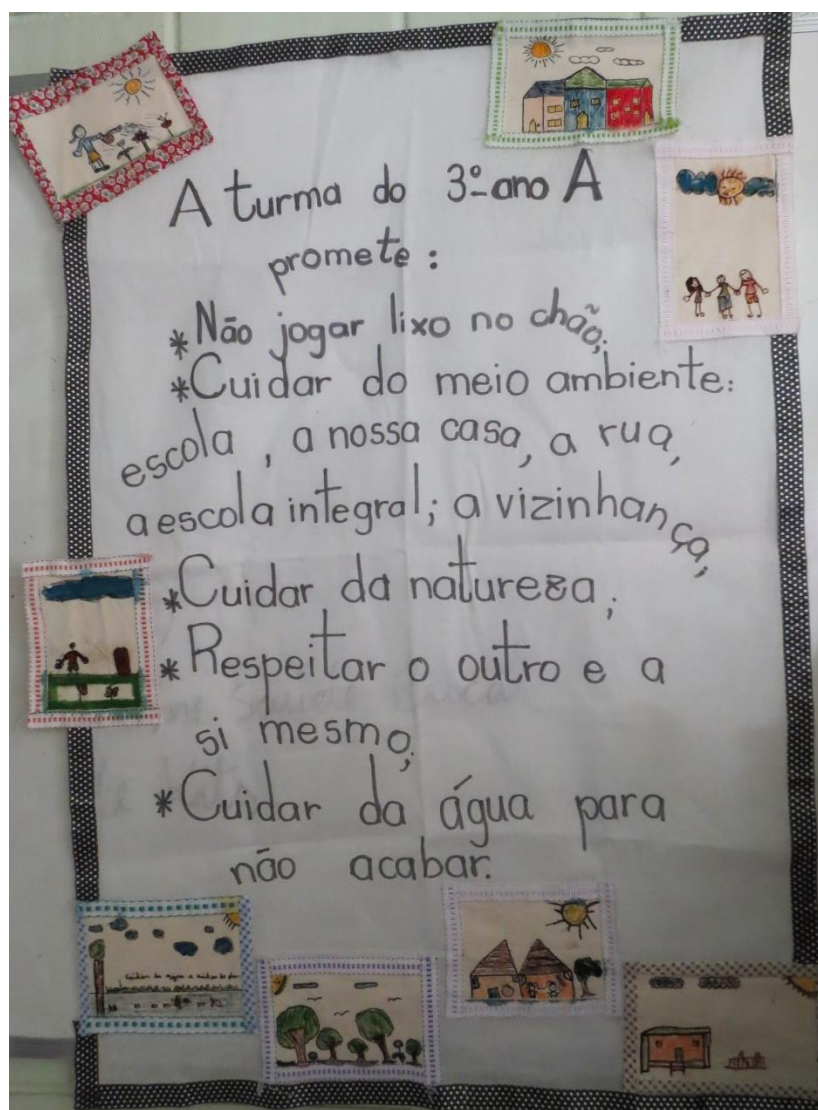 A turma do 3º ano A
promete:
*Não jogar lixo no chão;
*Cuidar do meio ambiente:
escola, a nossa casa, a rua,
a escola integral; a vizinhança;
*Cuidar da natureza;
*Respeitar o outro e a
si mesmo;
*Cuidar da água para
não acabar.